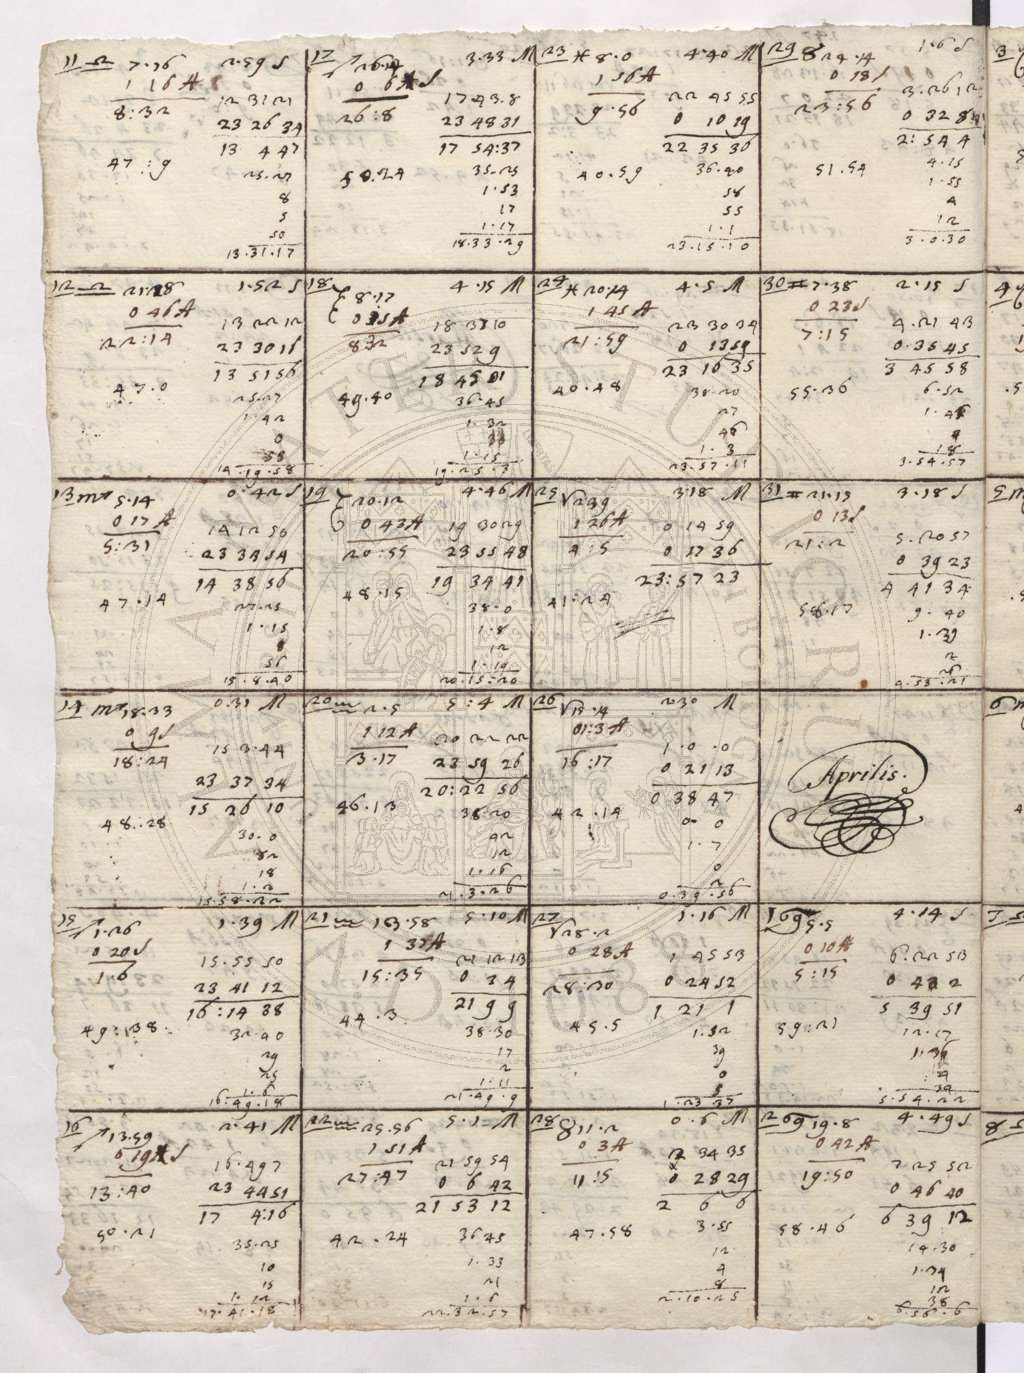 11 ♎ 7.16 2.59 S
1 16 A
8:32
12 31 21
23 26 34
13 4 47
47:9
25.27
8
5
50
13.31.17
12 ♎ 21.28 1.52 S
0 46 A
22:14
13 22 12
23 30 16
13 51 56
47.0
25.27
1.42
0
58
14.19.58
13 ♏ 5.14 0.42 S
0 17 A
5:31
14 12 56
23 34 54
14 38 56
47.14
27.25
1.15
8
56
15.8.40
14 ♏ 18.33 0.31 M
0 9 S
18:24
15 3.44
23 37 34
15 26 10
48.28
30.0
82
18
1.2
15.58.22
15 ♐ 1.26 1.39 M
0 20 S
1.6
15.55 50
23 41 12
16:14 38
49:38
32.40
29
25
1.6
16:49.18
16 ♐ 13.59 2.41 M
0 19 S
13:40
16.49 7
23 44 51
17 4:16
50.21
35.25
10
15
1.12
17.41.18
17 ♐ 26.14 3.33 M
0 6 S
26:8
17 43.8
23 48 31
17 54:37
50.24
35.25
1.53
17
1.17
18.33.29
18 ♑ 8.17 4.15 M
0 15 A
8 32
18 37 10
23 52 9
18 45 01
49.40
36.45
1.32
1.15
19 ♑ 20.12 4.46 M
0 43 A
20:55
19 30 29
23 55 48
19 34 41
48.15
38.0
1.8
12
1.10
20.15.20
20 ♒ 2.5 5:4 M
1 12 A
3.17
20 22 22
23 59 26
20:22 56
46.13
38.20
42
12
1.16
21.3.26
21 ♒ 13.58 5.10 M
1 37 A
15:35
21 12 13
0 3 4
21 9 9
44.3
38.30
17
2
1.11
21.49.9
22 ♒ 25.56 5.1 M
1 51 A
27:47
21 59 54
0 6 42
21 53 12
42.24
36 45
1.33
21
1.6
22.32.57
23 ♓ 8.0 4.40 M
1 56 A
9.56
22 45 55
0 10 19
22 35 36
40.59
36.40
58
55
1.1
23.15.10
24 ♓ 20.14 4.5 M
1 45 A
21:59
23 30 34
0 13 59
23 16 35
40.48
38.20
27
46
1.3
23.57.11
25 ♈ 2 39 3.18 M
1 26 A
4:5
0 14 59
0 17 36
23:57 23
41:24
26 ♈ 15.14 2 30 M
01:3 A
16:17
1.0.0
0 21 13
0 38 47
42.14
0 0
1.7
0
2
0.39.56
27 ♈ 28.2 1.16 M
0 28 A
28:30
1 45 53
0 24 52
1 21 1
45.5
1.52
39
0
5
1.23.37
28 ♉ 11.2 0.6 M
0 3 A
11:5
2 34 35
0 28 29
2 6 6
47.58
3.55
12
4
8
2.10.25
29 ♉ 24.14 1.6 S
0 18 S
23:56
3.26 12
0 32 8
2:54 4
51.54
4.15
1.55
4
12
3.0.30
30 ♊ 7.38 2.15 S
0 23 S
7:15
4.21 43
0.35 45
3 45 58
55.36
6.52
1.46
4
18
3.54.57
31 ♊ 21.15 3.18 S
0 13 S
21:2
5.20 57
0 39 23
4 41 34
58.17
9.40
1.39
2
26
4.53.21
Aprilis.
1 ♋ 5.5 4.14 S
0 10 A
5:15
6.22 53
0 43 2
5 39 51
59:21
12.17
1.36
24
5.54.22
2 ♋ 19.8 4.49 S
0 42 A
19:50
7 25 52
0 46 40
6 39 12
58.46
14.30
1.34
12
38
6.56.6